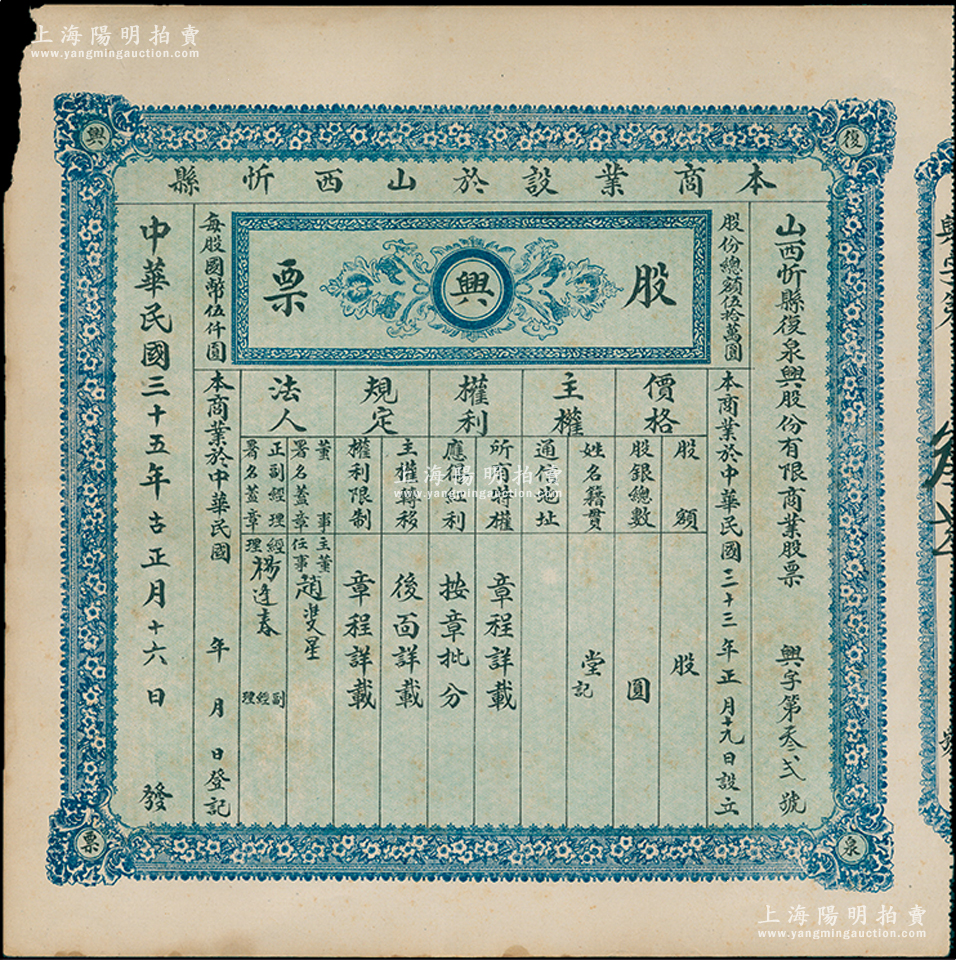 上海陽明拍賣
www.yangmingauction.com
復
興
泉
票
本商業設於山西忻縣
山西忻縣復泉興股份有限商業股票 興字第叁弍號
股份總額伍拾萬圓
本商業於中華民國三十三年正月十九日設立
股
興
票
每股國幣伍仟圓
價格
股額 股
股銀總數 圓
主權
姓名籍貫 堂記
通信地址
權利
所有特權 章程詳載
應得紅利 按章批分
規定
主權轉移 後面詳載
權利限制 章程詳載
法人
董事署名蓋章 主任董事 趙斐星
正副經理署名蓋章 經理 楊逢春 副經理
本商業於中華民國 年 月 日登記
中華民國三十五年古正月十六日 發
興字第
號
上海陽明拍賣
www.yangmingauction.com
上海陽明拍賣
www.yangmingauction.com